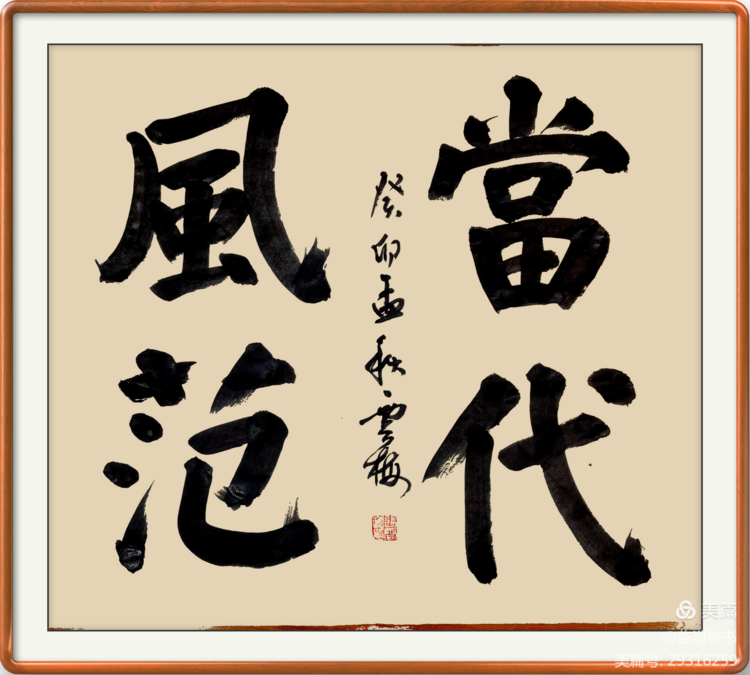 當代
風范
癸卯孟秋雲梅
美篇
美篇号: 29316259